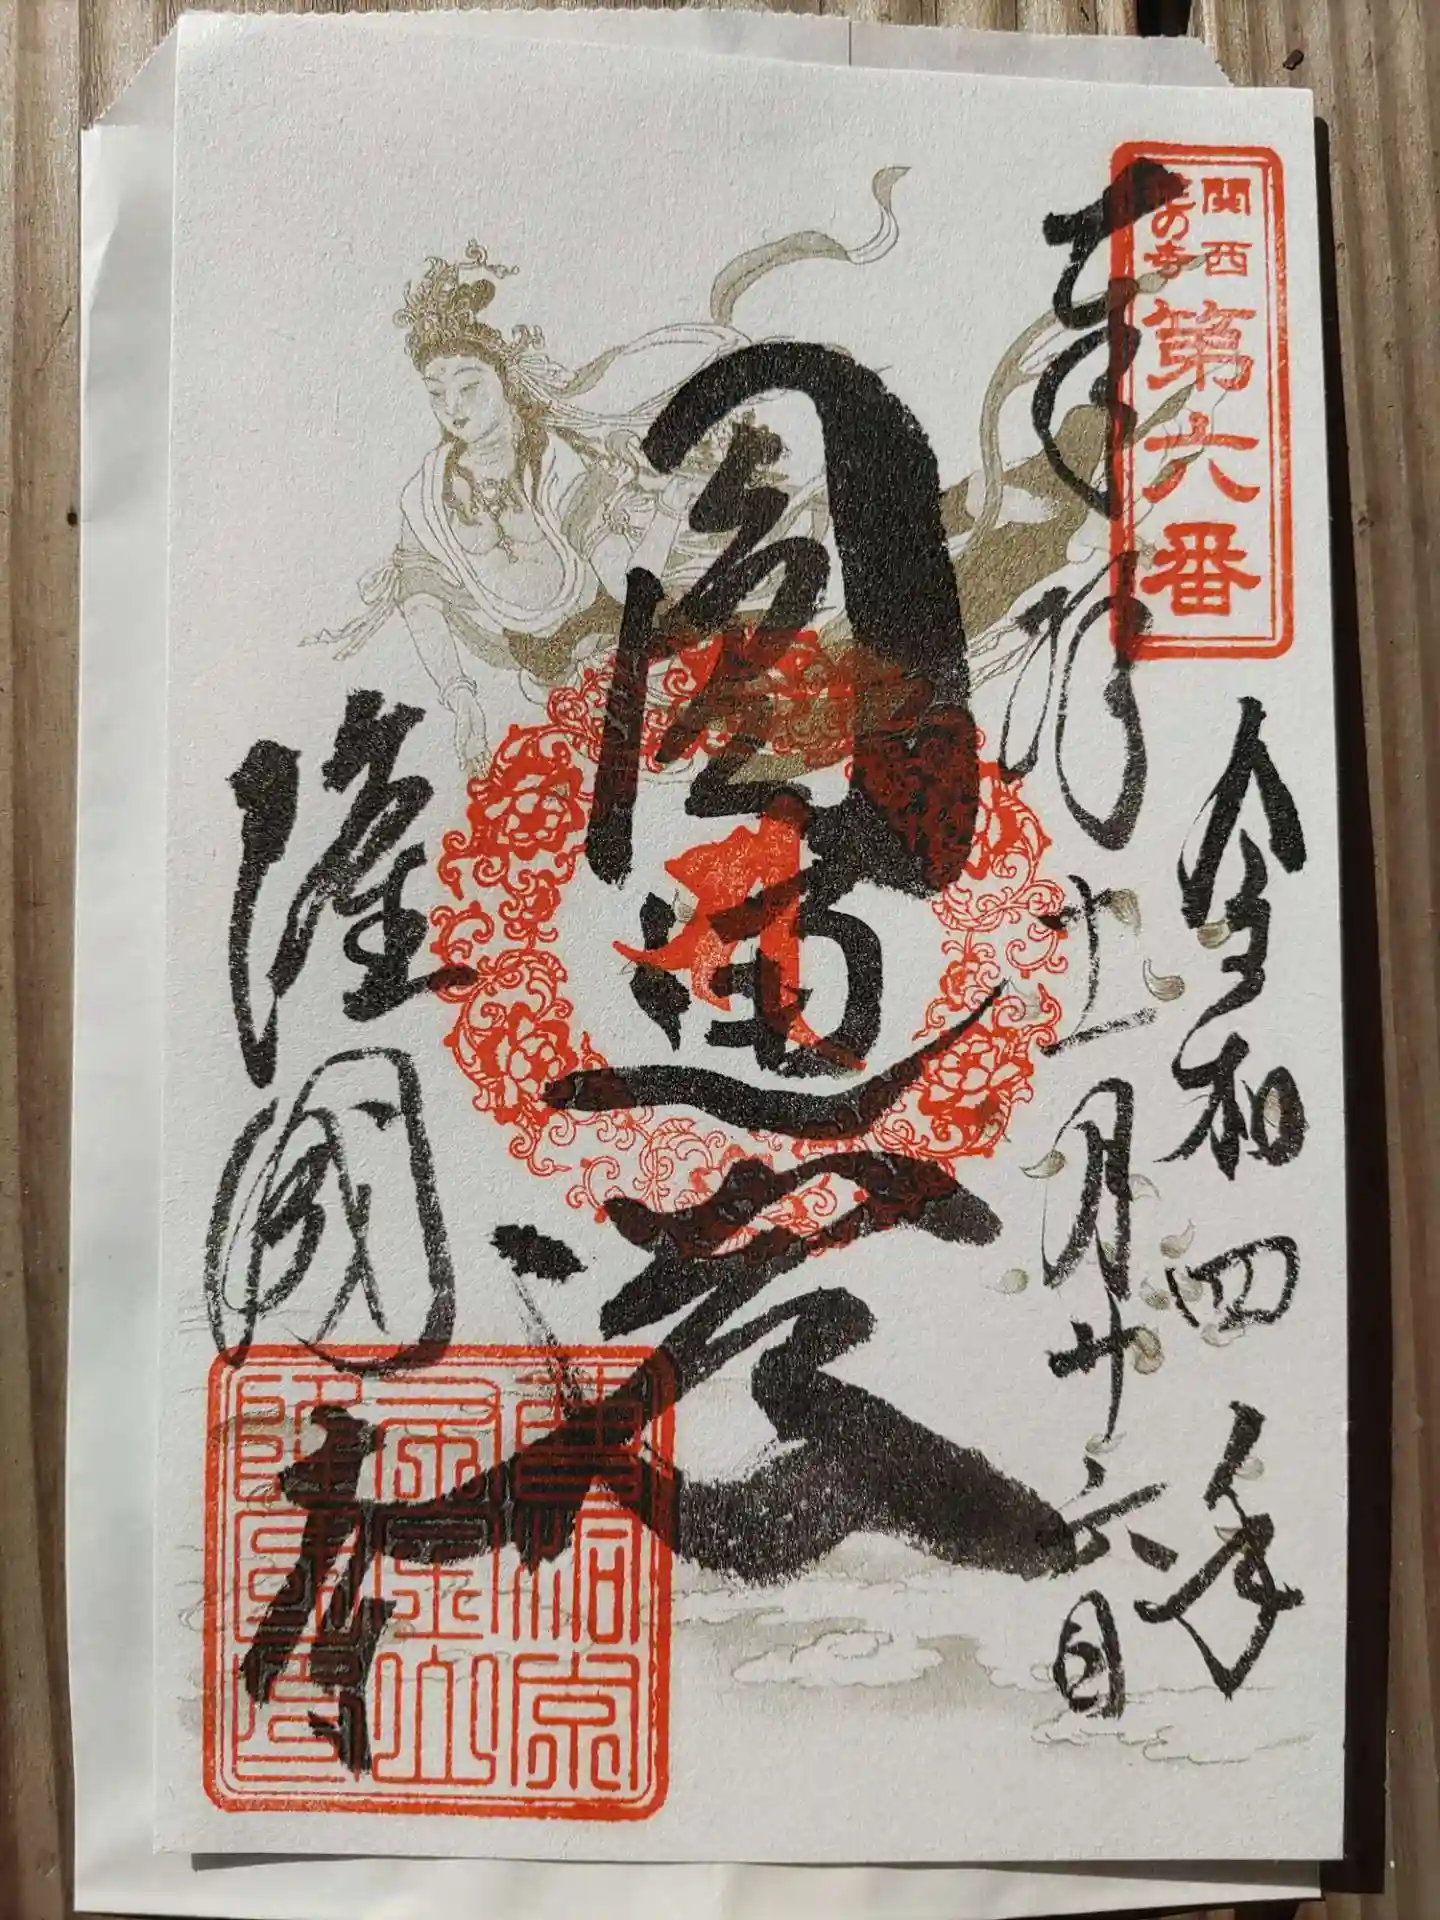 関西
花の寺
第六番
奉拝
令和四年
十一月廿六日
圓通
隆國寺